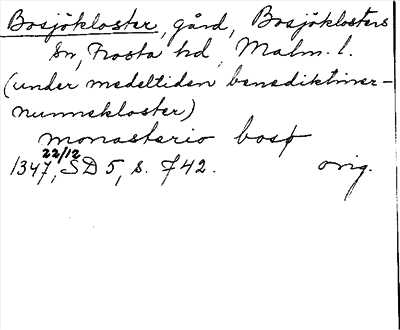 Bosjökloster, gård, Bosjöklosters
sn, Frosta hd, Malm. l.
(under medeltiden benediktiner-
nunnekloster)
monasterio bosø
22/12
1347, SD 5, s. 742. orig.